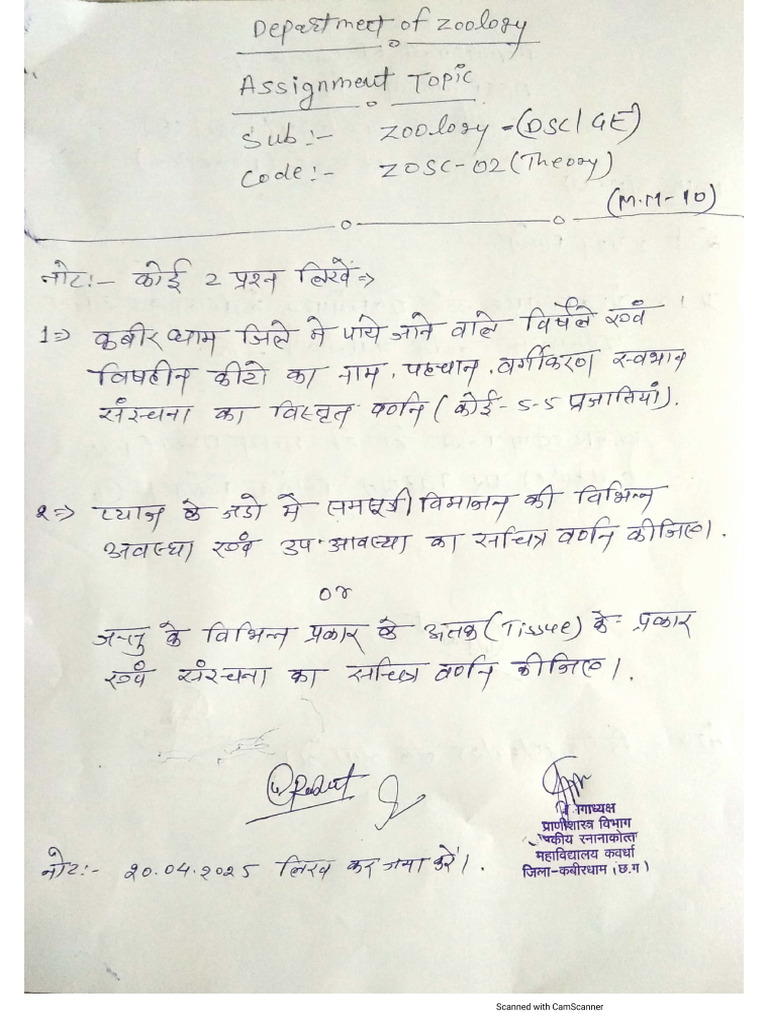 Department of Zoology
Assignment Topic
Sub:- Zoology-(DSC/GE)
Code:- ZOSC-02 (Theory)
(M.M-10)
नोट:- कोई 2 प्रश्न लिखें ⇒
1⇒ कबीरधाम जिले में पाये जाने वाले विषैले एवं
विषहीन कीटो का नाम, पहचान, वर्गीकरण स्वभाव
संरचना का विस्तृत वर्णन (कोई-5-5 प्रजातियां).
2⇒ प्याज के जडो में समसूत्री विभाजन की विभिन्न
अवस्था एवं उप-अवस्था का सचित्र वर्णन कीजिए।.
or
जन्तु के विभिन्न प्रकार के ऊतक (Tissue) के प्रकार
एवं संरचना का सचित्र वर्णन कीजिए।.
विभागाध्यक्ष
प्राणीशास्त्र विभाग
महाविद्यालय कवर्धा
जिला-कबीरधाम (छ.ग)
नोट:- 20.04.2025 लिख कर जमा करें।.
Scanned with CamScanner